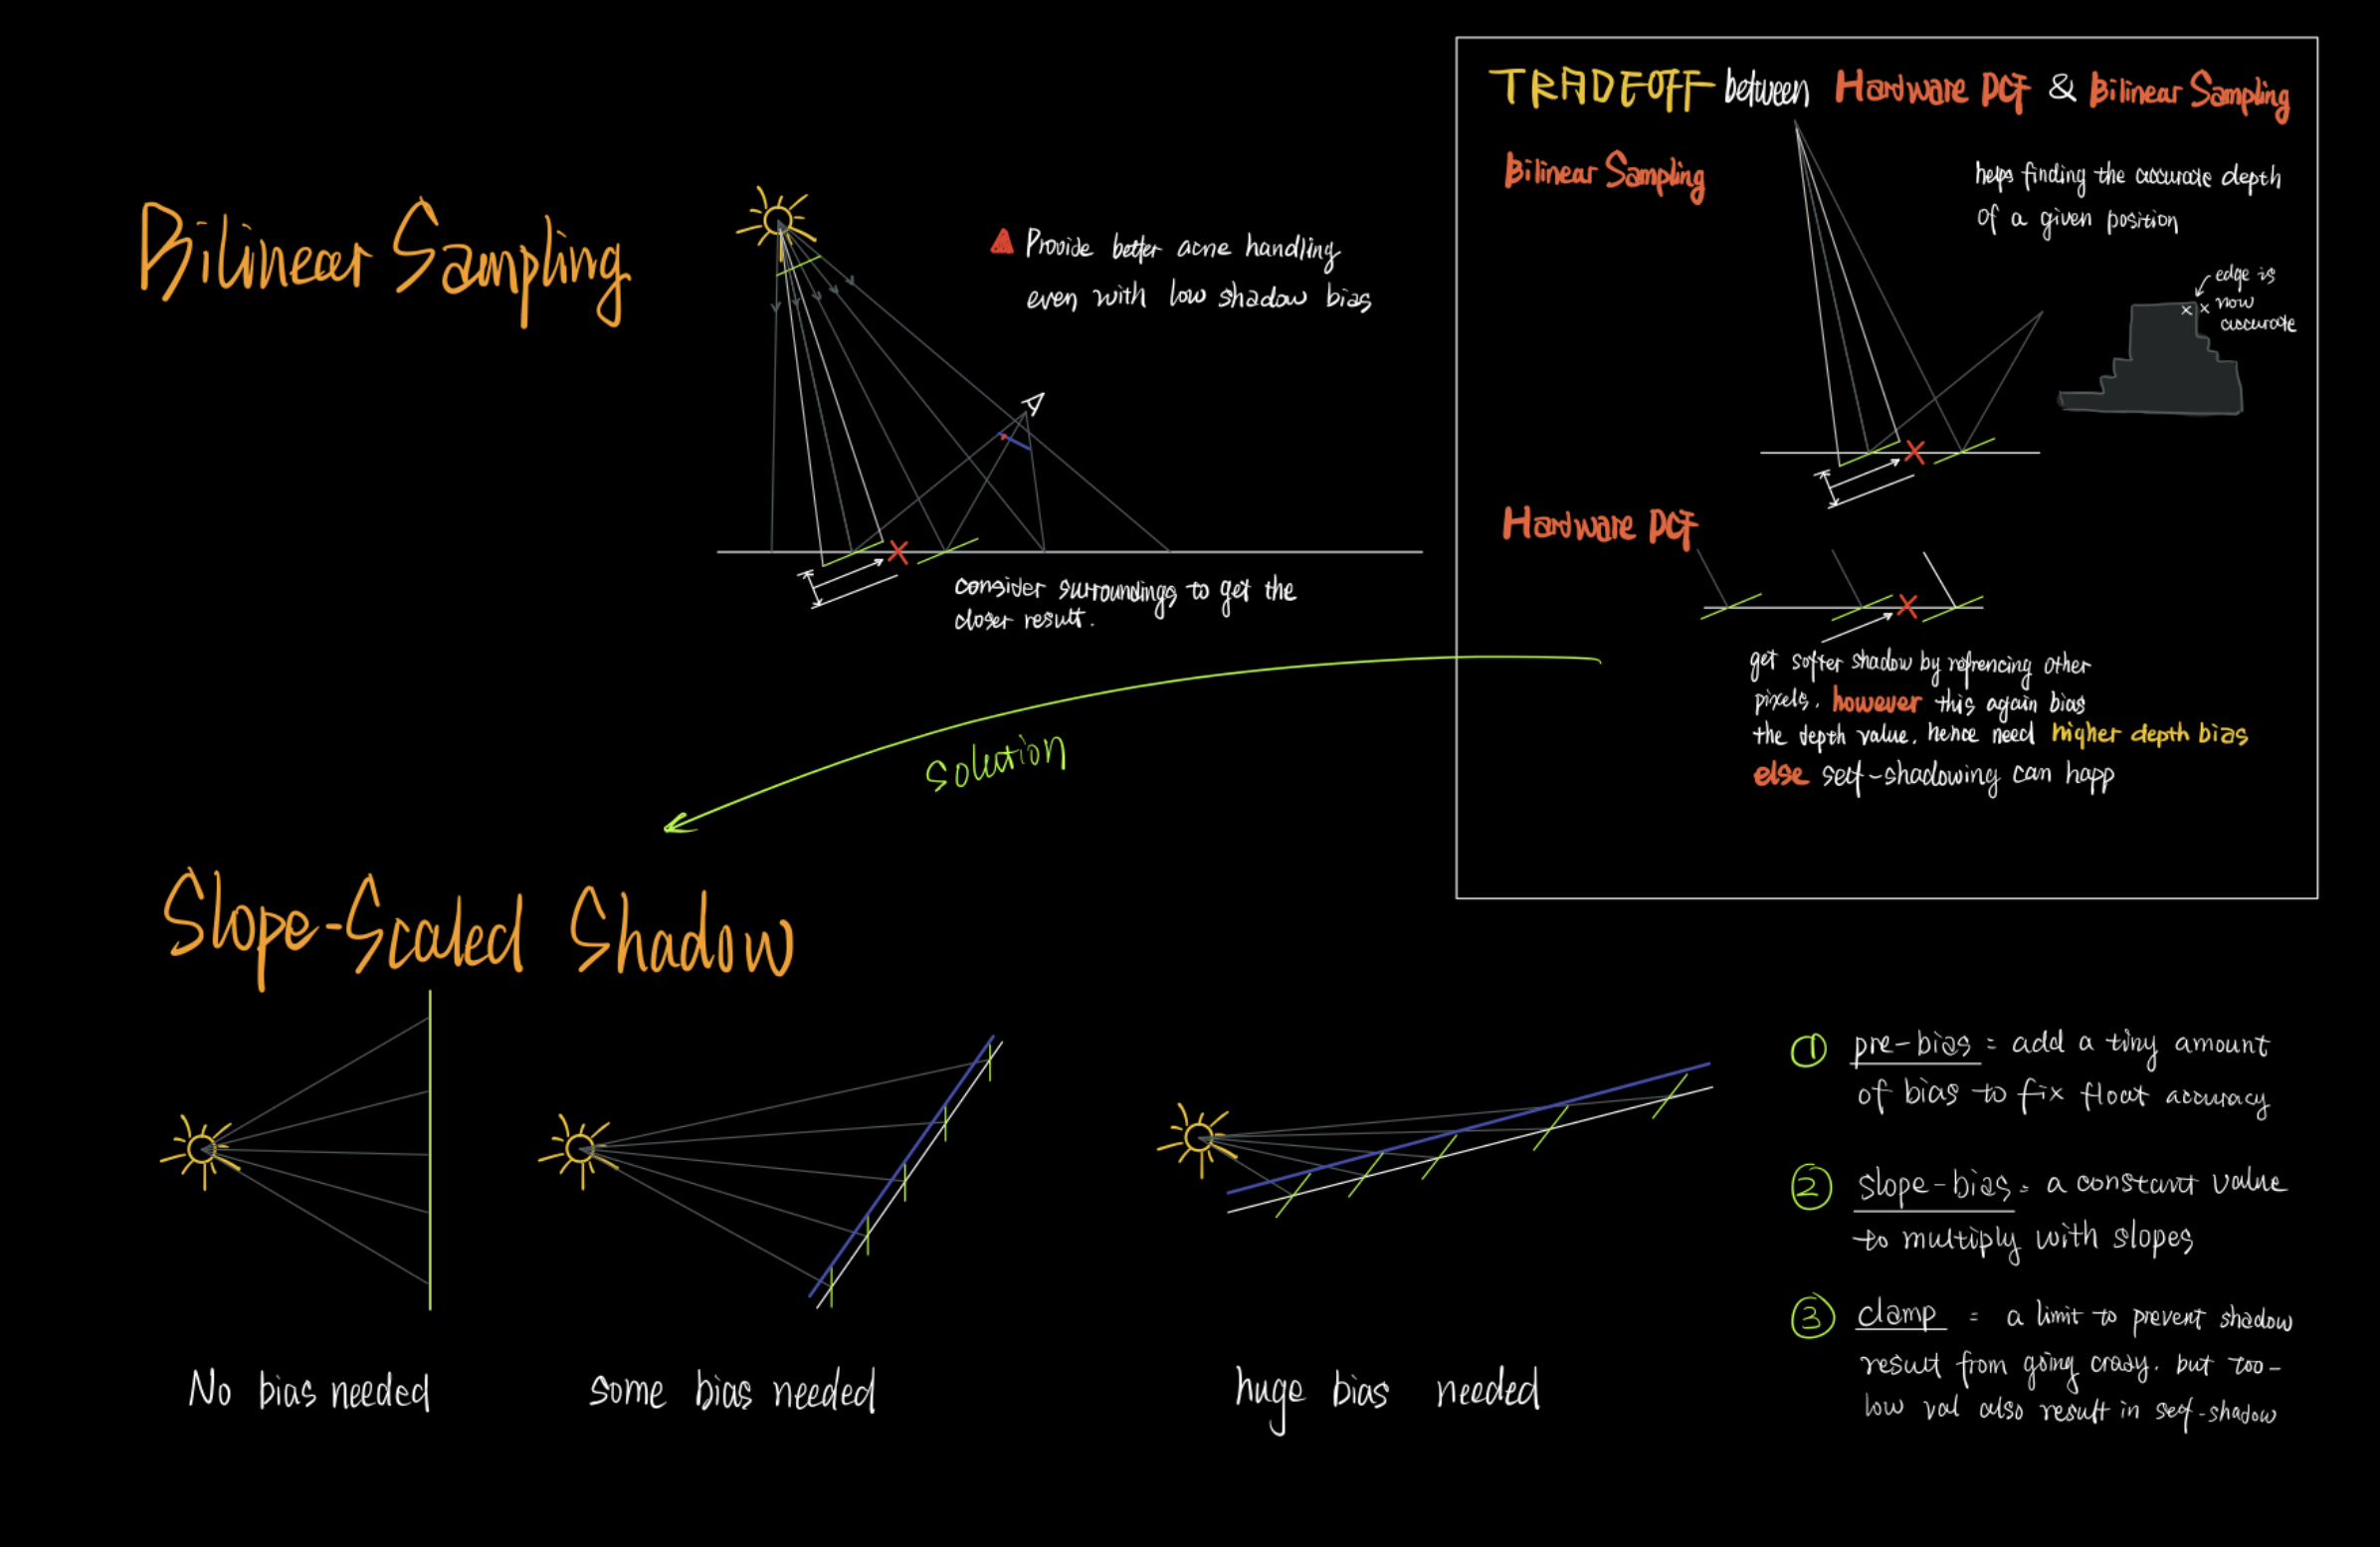 Bilinear Sampling
▲ Provide better acne handling
even with low shadow bias
consider surroundings to get the
closer result.
TRADEOFF between Hardware PCF & Bilinear Sampling
Bilinear Sampling
helps finding the accurate depth
of a given position
edge is
now
accurate
Hardware PCF
get softer shadow by refrencing other
pixels. however this again bias
the depth value. hence need higher depth bias
else self-shadowing can happ
solution
Slope-Scaled Shadow
No bias needed
some bias needed
huge bias needed
① pre-bias = add a tiny amount
of bias to fix float accuracy
② slope-bias = a constant value
to multiply with slopes
③ clamp = a limit to prevent shadow
result from going crazy. but too-
low val also result in self-shadow